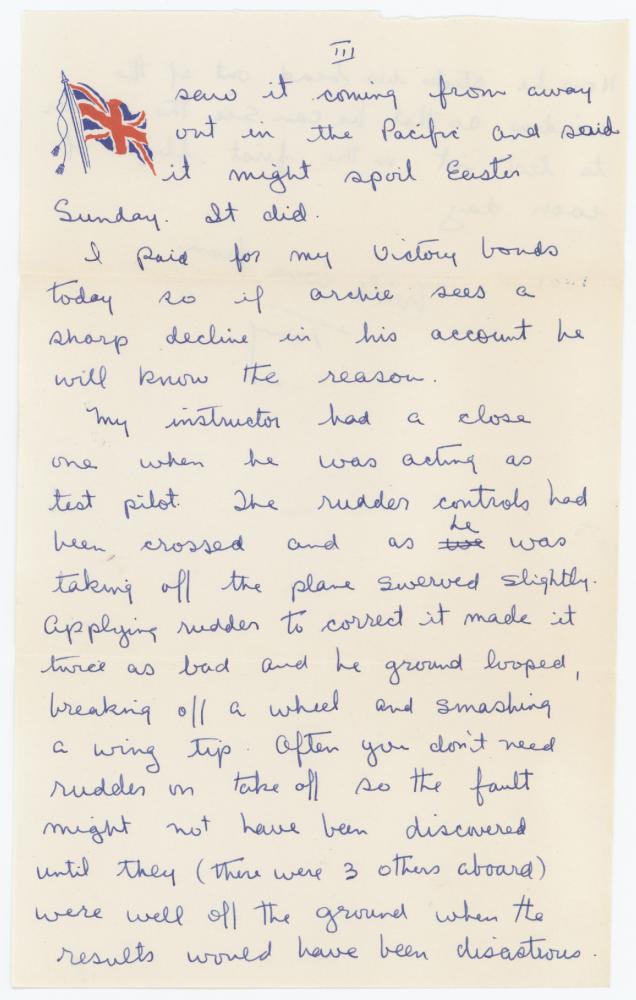 III
saw it coming from away
out in the Pacific and said
it might spoil Easter
Sunday. It did.
I paid for my Victory bonds
today so if archie sees a
sharp decline in his account he
will know the reason.
My instructor had a close
one when he was acting as
test pilot. The rudder controls had
been crossed and as he was
taking off the plane swerved slightly.
Applying rudder to correct it made it
twice as bad and he ground looped,
breaking off a wheel and smashing
a wing tip. Often you don't need
rudder on take off so the fault
might not have been discovered
until they (there were 3 others aboard)
were well off the ground when the
results would have been disastrous.